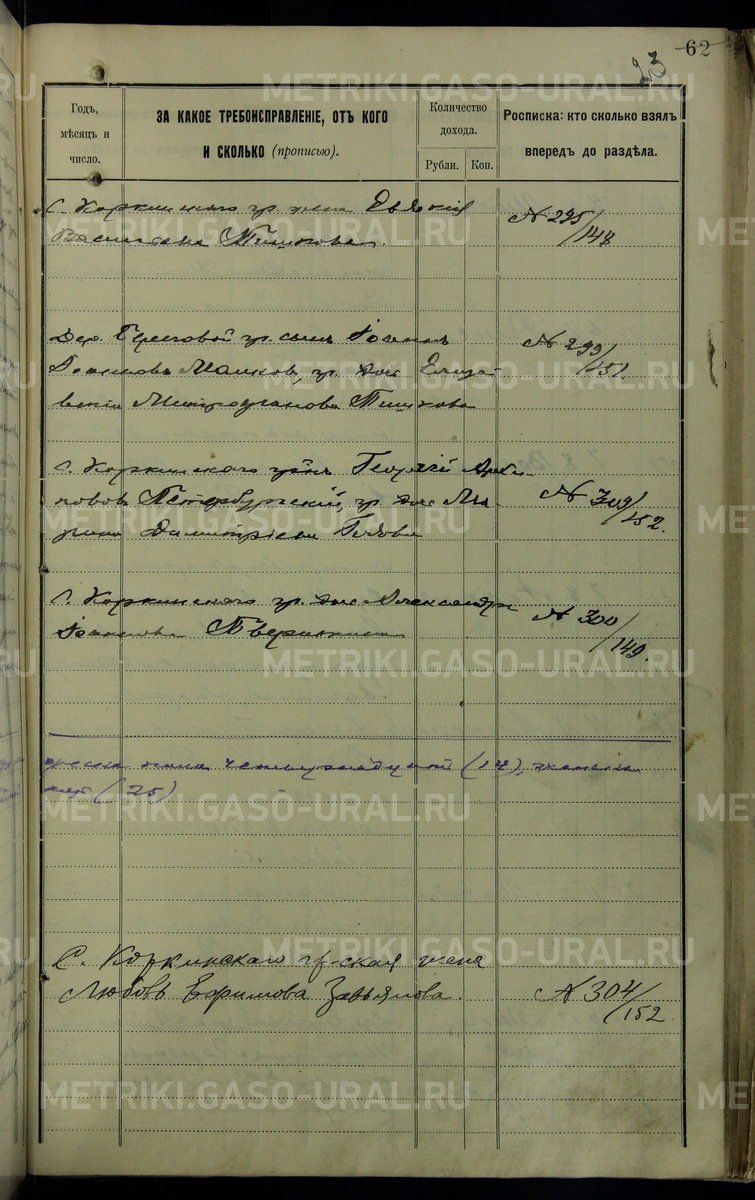 62
23
Годъ, мѣсяцъ и число.
ЗА КАКОЕ ТРЕБОИСПРАВЛЕНІЕ, ОТЪ КОГО И СКОЛЬКО (прописью).
Количество дохода.
Рубли.
Коп.
Росписка: кто сколько взялъ впередъ до раздѣла.
С. Коркинскаго гр. жена Евдокія
Васильева Пишкова.
№ 295/148
Дер. Береговой гр. сынъ Іоаннъ
Іоанновъ Машковъ, гр. дочь Елиза-
Митрофанова Пишкова
№ 299/151.
С. Коркинскаго Георгій
Петербургскій, гр. дочь Ма-
рина Димитріева
№ 309/152.
С. Коркинскаго гр. дочь Александра
Іоаннова
№ 300/149.
(14),
(25)
С. Коркинскаго гр-ская жена
Любовь Ефимова Завьялова.
№ 304/152
METRIKI.GASO-URAL.RU